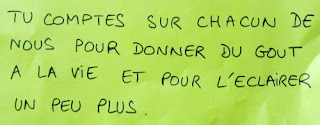 TU COMPTES SUR CHACUN DE
NOUS POUR DONNER DU GOUT
A LA VIE ET POUR L'ECLAIRER
UN PEU PLUS.